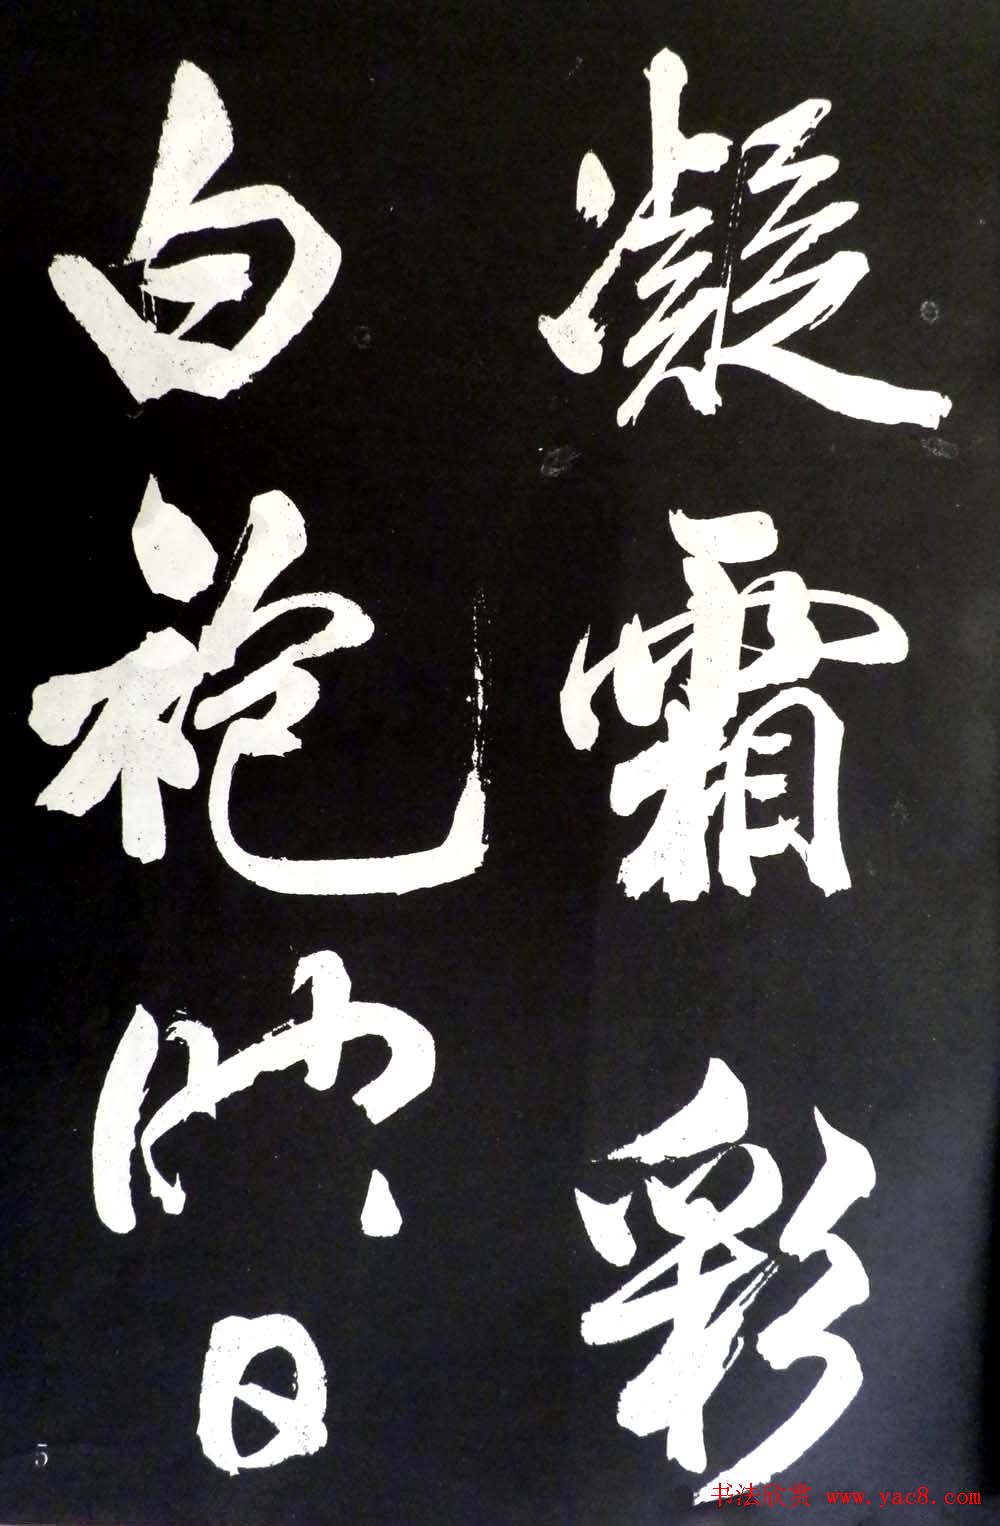 凝霜彩
白袍臨日
5
书法欣赏 www.yac8.com